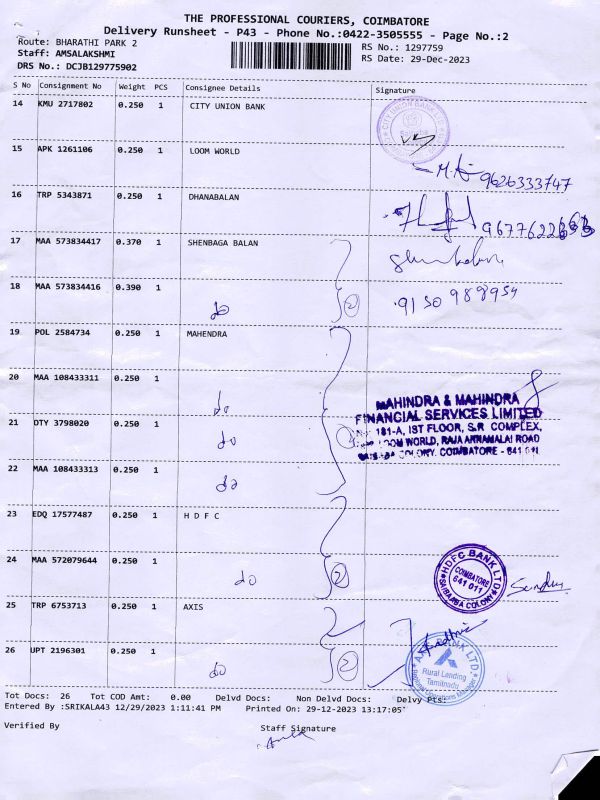 THE PROFESSIONAL COURIERS, COIMBATORE
Delivery Runsheet - P43 - Phone No.:0422-3505555 - Page No.:2
Route: BHARATHI PARK 2 RS No.: 1297759
Staff: AMSALAKSHMI RS Date: 29-Dec-2023
DRS No.: DCJB129775902
S No Consignment No Weight PCS Consignee Details Signature
14 KMU 2717802 0.250 1 CITY UNION BANK
15 APK 1261106 0.250 1 LOOM WORLD
9626333747
16 TRP 5343871 0.250 1 DHANABALAN
17 MAA 573834417 0.370 1 SHENBAGA BALAN
18 MAA 573834416 0.390 1
do 2
19 POL 2584734 0.250 1 MAHENDRA
20 MAA 108433311 0.250 1
do
MAHINDRA & MAHINDRA
FINANCIAL SERVICES LIMITED
21 DTY 3798020 0.250 1
181-A, IST FLOOR, S.R COMPLEX,
do
LOOM WORLD, RAJA ANNAMALAI ROAD
COLONY. COIMBATORE - 641 011
22 MAA 108433313 0.250 1
do
23 EDQ 17577487 0.250 1 H D F C
24 MAA 572079644 0.250 1
do 2
HDFC BANK LTD
COIMBATORE
641 011
SAIBABA COLONY
25 TRP 6753713 0.250 1 AXIS
26 UPT 2196301 0.250 1
do 2
AXIS BANK LTD
Rural Lending
Tamilnadu
Tot Docs: 26 Tot COD Amt: 0.00 Delvd Docs: Non Delvd Docs: Delvy Pts:
Entered By :SRIKALA43 12/29/2023 1:11:41 PM Printed On: 29-12-2023 13:17:05
Verified By Staff Signature